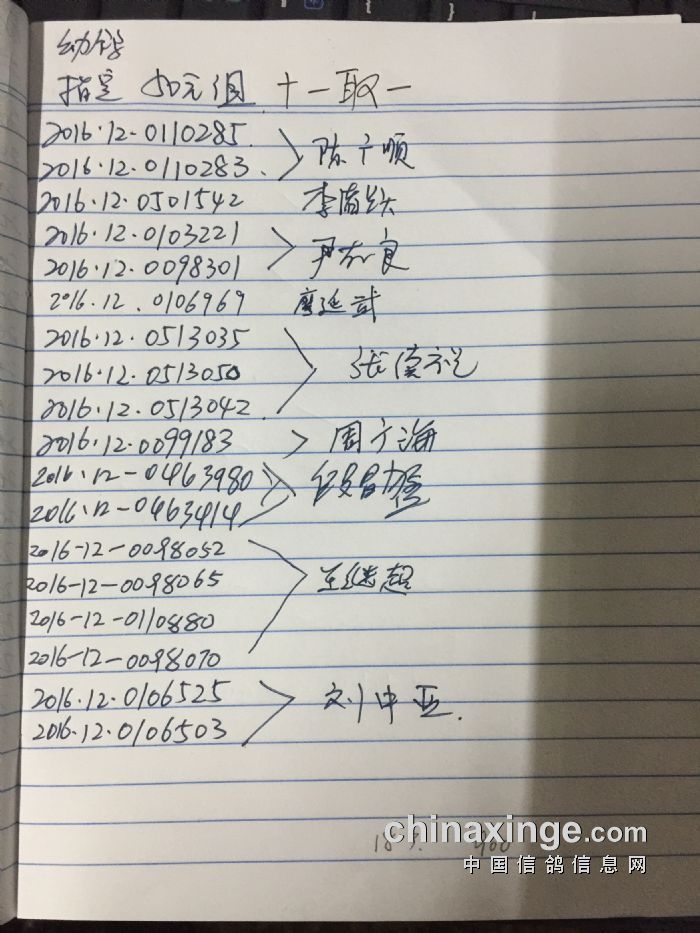 幼鸽
指定 50元组 十一取一
2016.12-0110285
2016.12.0110283 陈广顺
2016.12.0501542 李
2016.12.0103221
2016.12.0098301 尹良
2016.12.0106969 廖延武
2016.12.0513035
2016.12.0513050 张
2016.12.0513042
2016.12.0099183 周广海
2016.12-0463980
2016.12-0463414
2016-12-0098052
2016-12-0098065 王继超
2016-12-0110880
2016-12-0098070
2016.12.0106525 刘中亚.
2016.12.0106503
chinaxinge.com
18 900
中国信鸽信息网